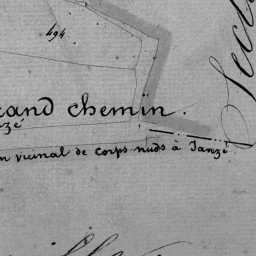 494
rand chemin.
nzé
n vicinal de corps nuds à Janzé
Sect